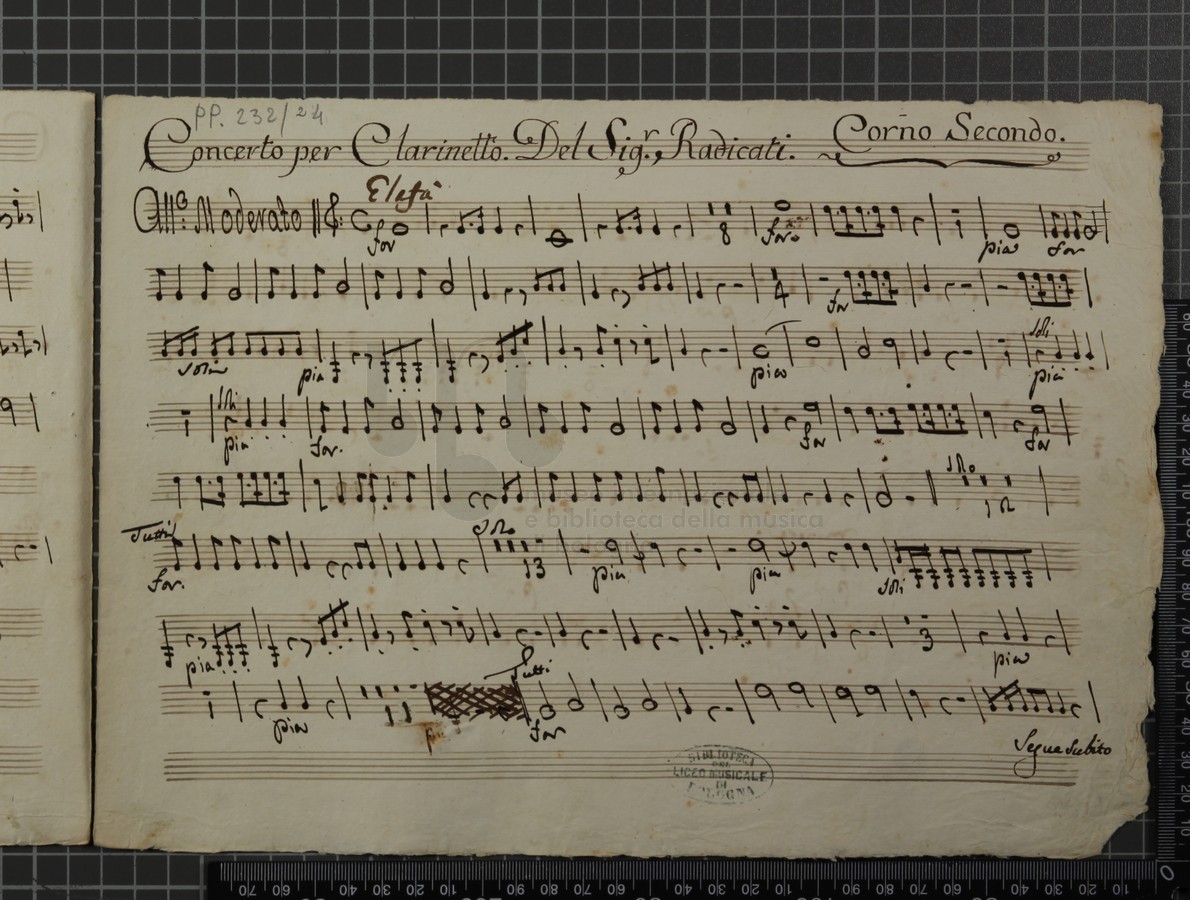 PP. 232/24
Concerto per Clarinetto. Del Sig.r Radicati. Corno Secondo.
Elafà
All.o Moderato
for 8 for. pia for
4 for
Soli pia pia Soli pia
Soli pia for. for for
Solo
e biblioteca della musica
Tutti Solo
for. 13 pia pia Soli
pia 3 pia
Tutti
pia 11 for
Segue subito
BIBLIOTECA
DEL
LICEO MUSICALE
DI
BOLOGNA